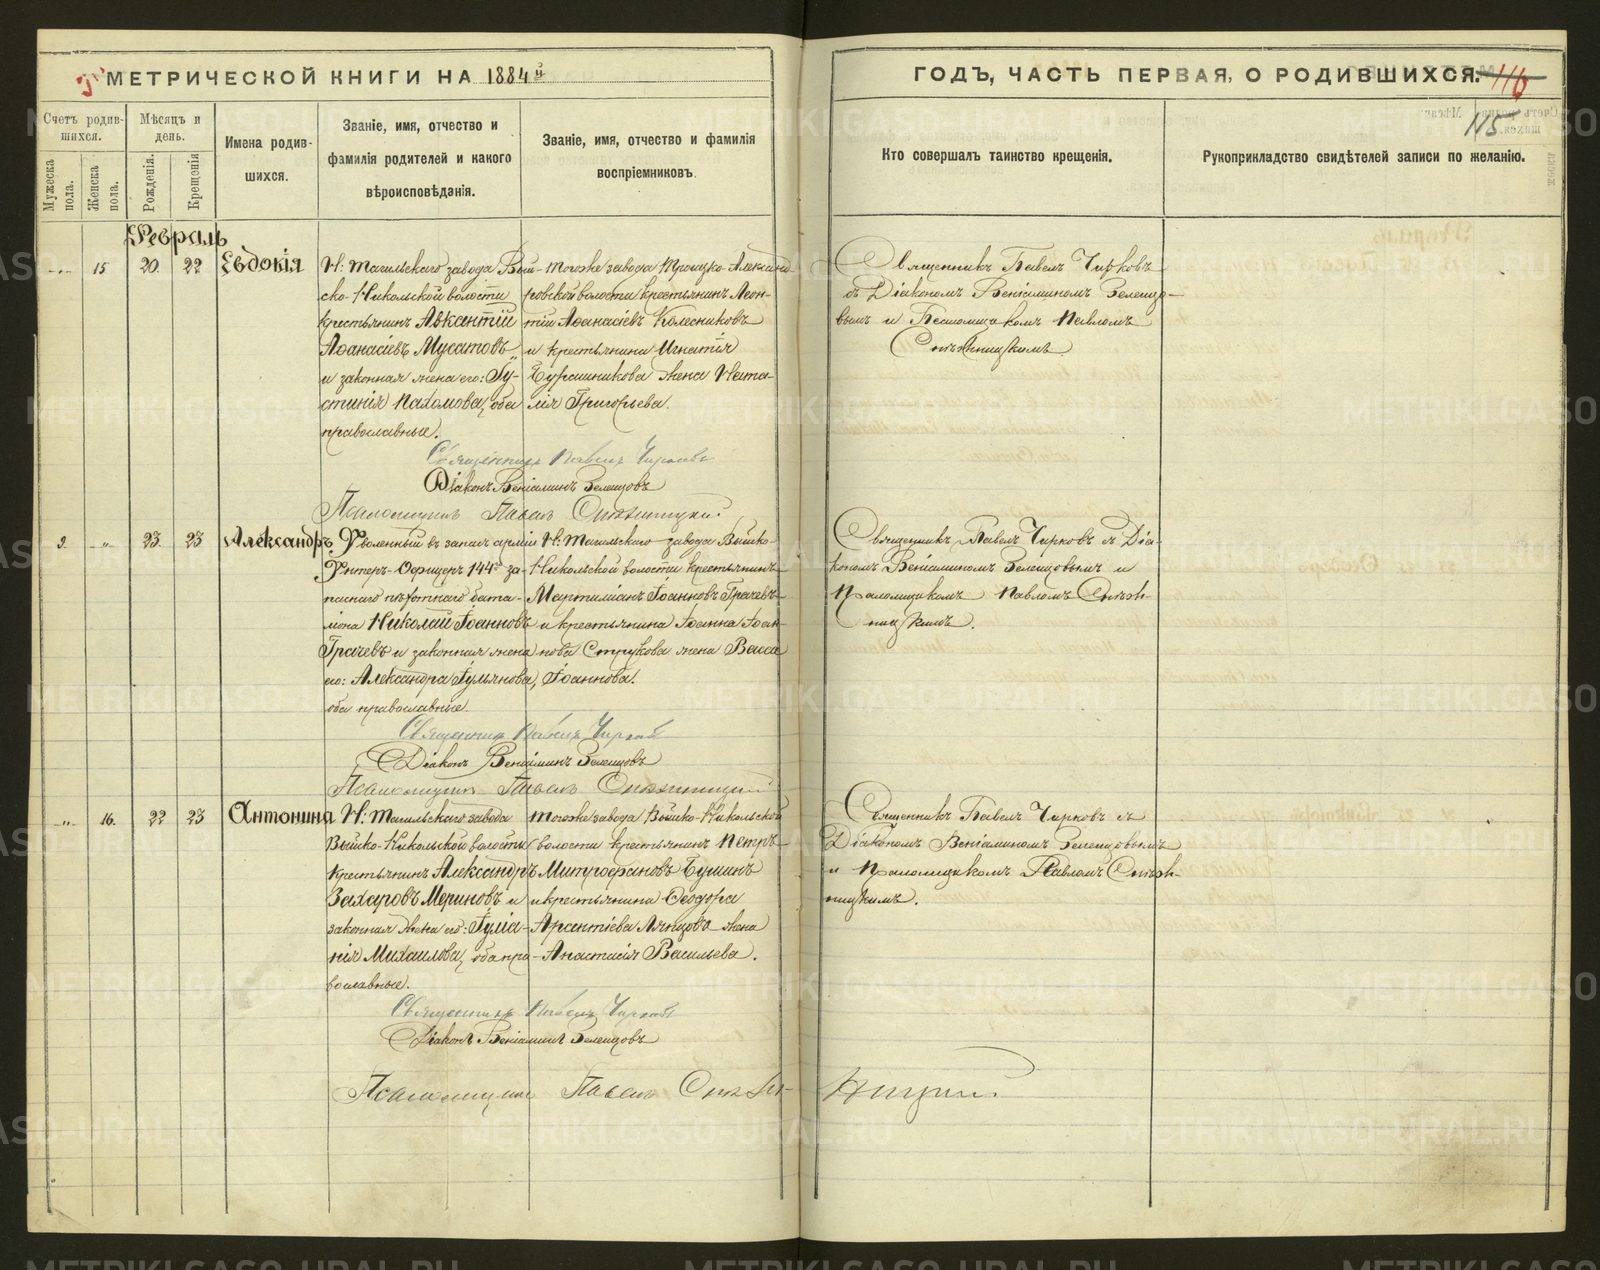 МЕТРИЧЕСКОЙ КНИГИ НА 1884й
ГОДЪ, ЧАСТЬ ПЕРВАЯ, О РОДИВШИХСЯ.
116
115
Счетъ родив-
шихся.
Мужеска пола.
Женска пола.
Мѣсяцъ и
день.
Рожденія.
Крещенія
Имена родив-
шихся.
Званіе, имя, отчество и
фамилія родителей и какого
вѣроисповѣданія.
Званіе, имя, отчество и фамилія
воспріемниковъ.
Кто совершалъ таинство крещенія.
Рукоприкладство свидѣтелей записи по желанію.
Февраль
15 20. 22 Евдокія
Н: Тагильскаго завода Вый-
ско-Никольской волости
крестьянинъ Авксантій
Аѳанасіевъ Мусатовъ
и законная жена его: Гу-
стинія Пахомова, оба
православные.
Тогоже завода Троицко-Александ-
ровской волости крестьянинъ Леон-
тій Аѳанасіевъ Колесниковъ
и крестьянина Игнатія
Бурашникова жена Ната-
лія Григорьева.
Священникъ Павелъ Чирковъ
съ Діакономъ Веніаминомъ Зеленцо-
вымъ и Псаломщикомъ Павломъ
Снѣжницкимъ.
Священникъ Павелъ Чирковъ
Діаконъ Веніаминъ Зеленцовъ
Псаломщикъ Павелъ Снѣжницкій.
9. 23. 23 Александръ.
Уволенный въ запасъ арміи
Унтеръ-Офицеръ 144го за-
паснаго пѣхотнаго бата-
ліона Николай Іоанновъ
Грачевъ и законная жена
его: Александра Гульянова,
оба православные.
Н: Тагильскаго завода Выйско-
Никольской волости крестьянинъ
Мартиміанъ Іоанновъ Грачевъ
и крестьянина Іоанна Іоан-
нова Струкова жена Васса
Іоаннова.
Священникъ Павелъ Чирковъ съ Діа-
кономъ Веніаминомъ Зеленцовымъ и
Псаломщикомъ Павломъ Снѣж-
ницкимъ.
Священникъ Павелъ Чирковъ
Діаконъ Веніаминъ Зеленцовъ
Псаломщикъ Павелъ Снѣжницкій
16. 22 23 Антонина
Н: Тагильскаго завода
Выйско-Никольской волости
крестьянинъ Александръ
Захаровъ Мериновъ и
законная жена его: Гуліа-
нія Михаилова, оба пра-
вославные.
Тогоже завода Выйско-Никольской
волости крестьянинъ Петръ
Митрофановъ Бушинъ
и крестьянина Ѳеодора
Арсентіева жена
Анастасія Васильева.
Священникъ Павелъ Чирковъ съ
Діакономъ Веніаминомъ Зеленцовымъ
и Псаломщикомъ Павломъ Снѣж-
ницкимъ.
Священникъ Павелъ Чирковъ
Діаконъ Веніаминъ Зеленцовъ
Псаломщикъ Павелъ Снѣж-
ницкій.
METRIKI.GASO-URAL.RU